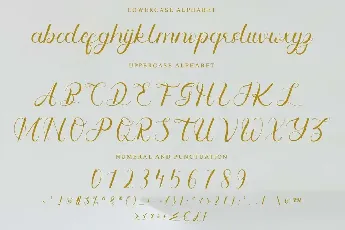 LOWERCASE ALPHABET
abcdefghijklmnopqrstuvwxyz
UPPERCASE ALPHABET
ABCDEFGHIJKL
MNOPQRSTUVWXYZ
NUMERAL AND PUNCTUATION
0123456789